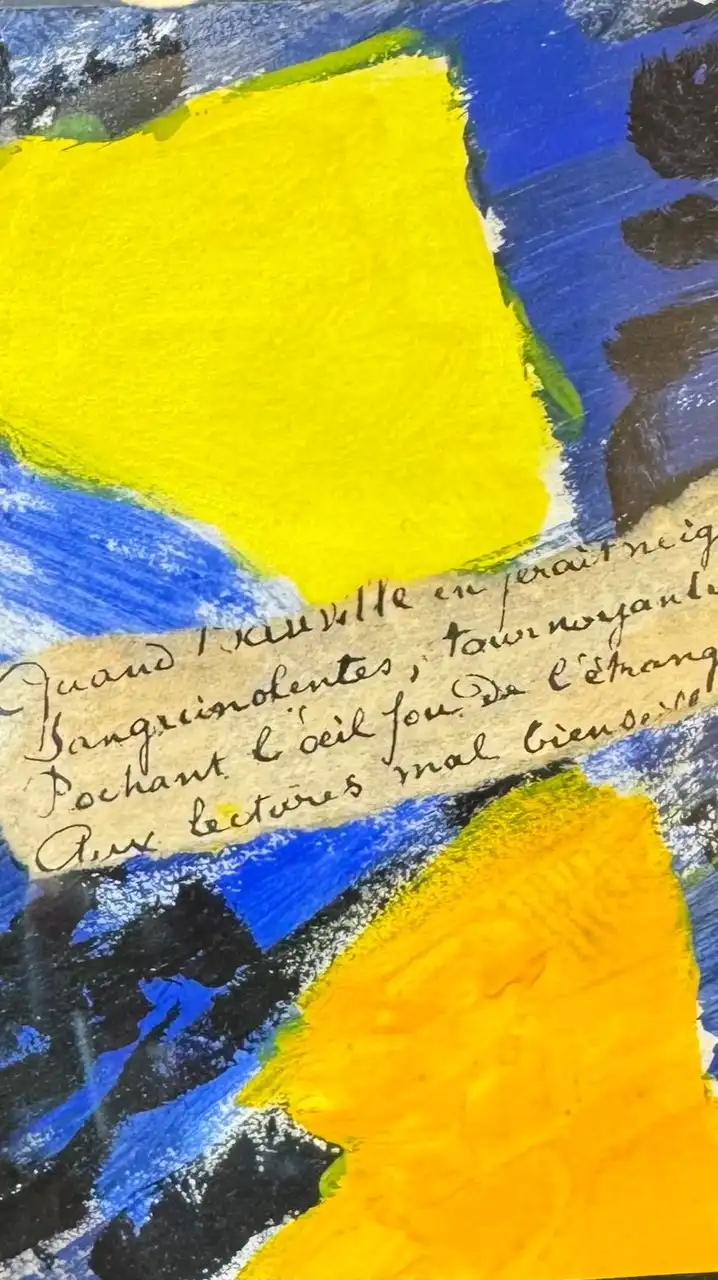 Quand Banville en ferait neig
Sanguinolentes, tournoyante
Pochant l'œil fou de l'étrang
Aux lectures mal bienveill